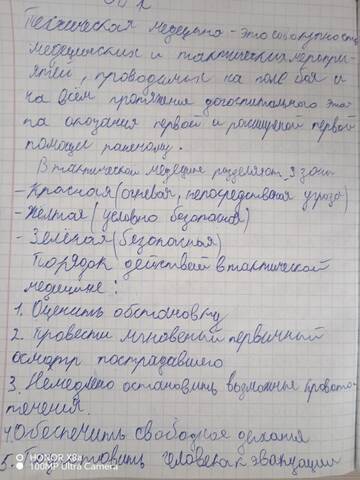 Тактическая медецина - это совокупность
медецинских и тактических меропри-
ятей, проводимых на поле боя и
на всём протяжения догоспитального эта-
па оказания первой и расширеной первой
помощи раненому.
В тактической медецине разделяют 3 зоны
- Красная (огневая, непосредственая угроза)
- Жёлтая (условно безопасная)
- Зелёная (безопасныя)
Порядок действей в тактической
медецине:
1. Оценить обстановку
2. Провести мгновеный первичный
осмотр пострадавшего
3. Немедлено остановить возможные крово-
течения.
4. Обеспечить свободное дыхания
5. Подготовить человека к эвакуации
HONOR X8a
100MP Ultra Camera